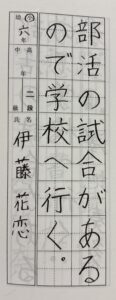 部活の試合がある
ので学校へ行く。
六年 中 高 二 段 級 氏名 伊藤 花恋